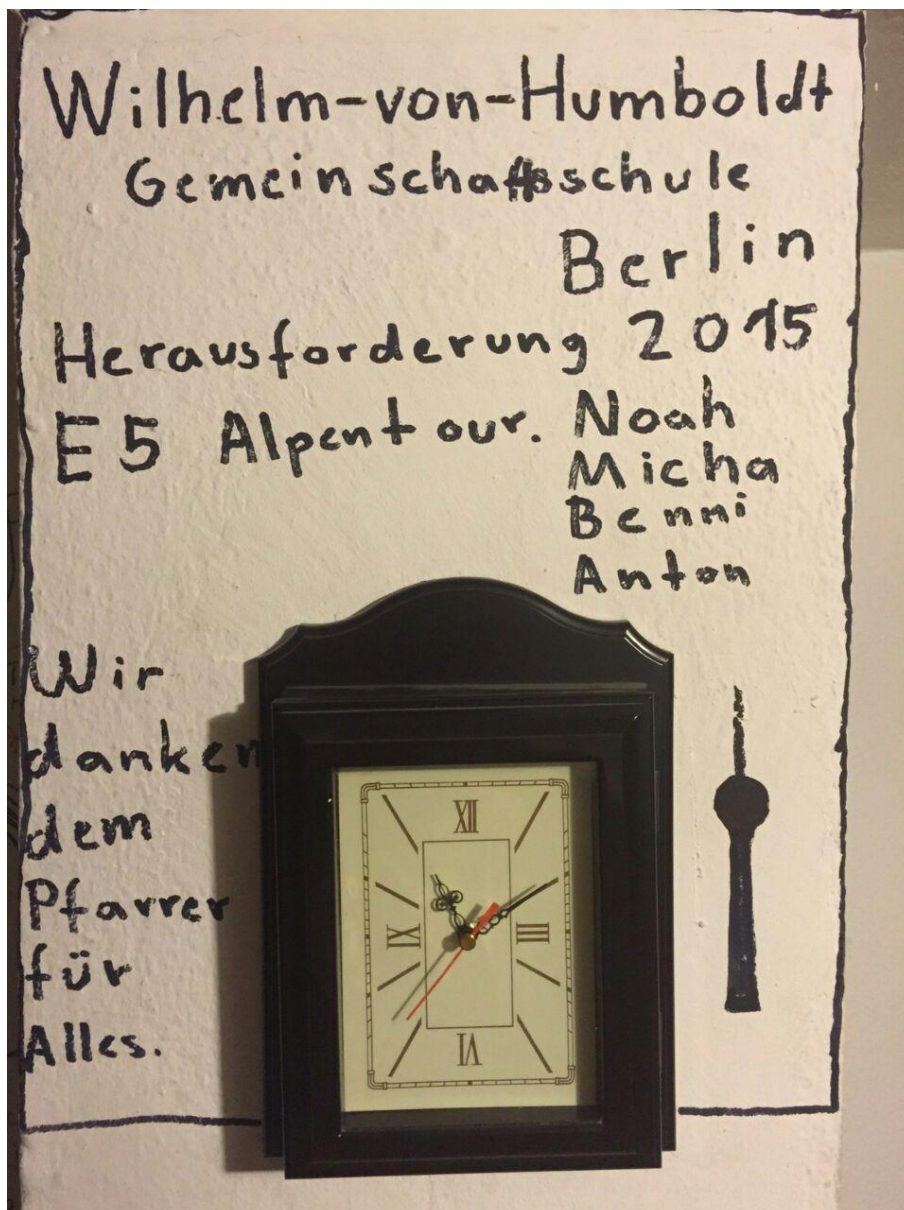 Wilhelm-von-Humboldt
Gemeinschaftsschule
Berlin
Herausforderung 2015
E5 Alpentour. Noah
Micha
Benni
Anton
Wir
danken
dem
Pfarrer
für
Alles.
XII
XI III
VI